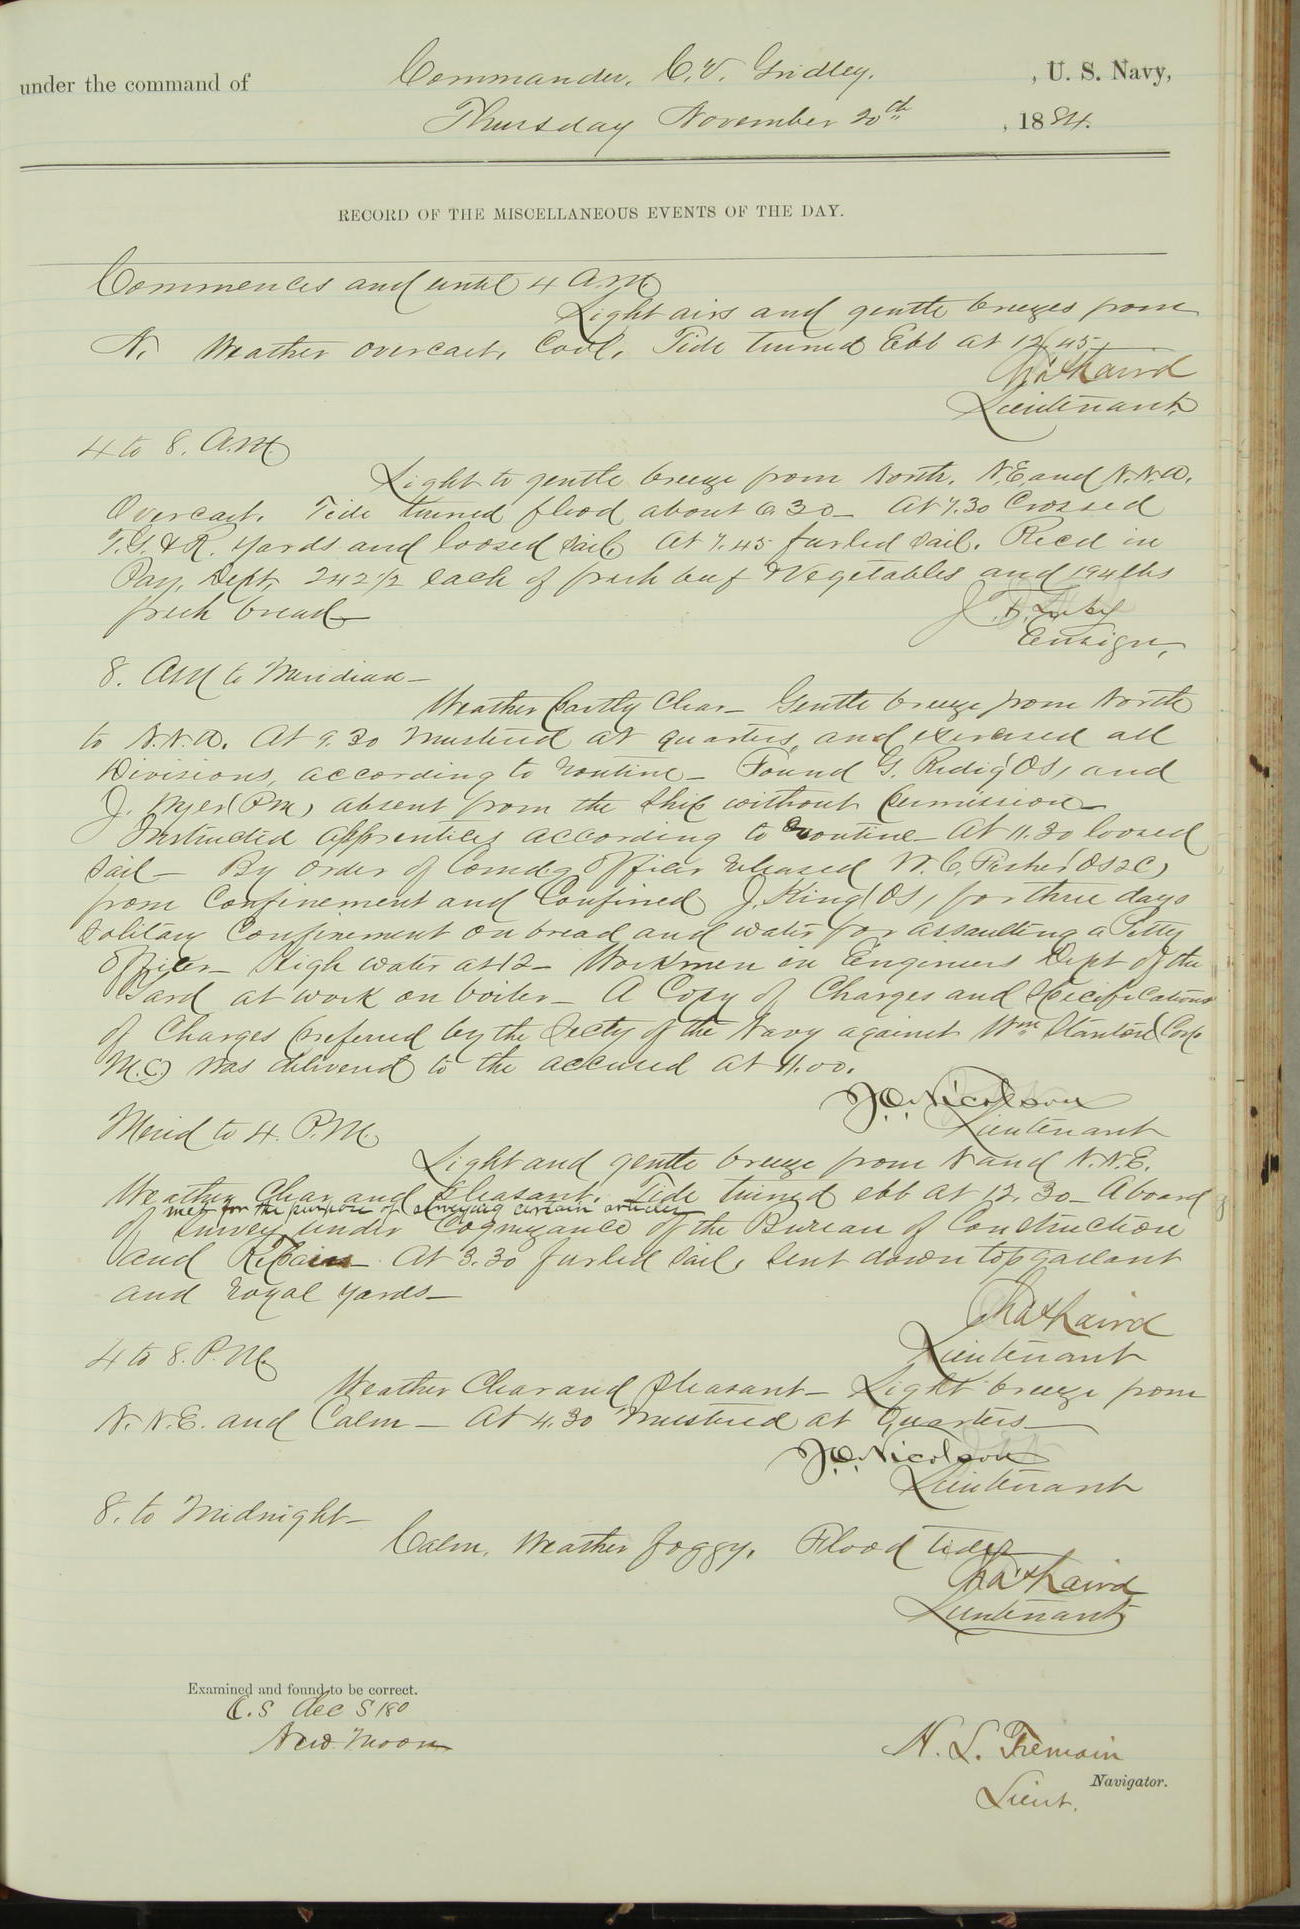 under the command of Commander, C. V. Gridley. , U. S. Navy,
Thursday November 20th , 1884.
RECORD OF THE MISCELLANEOUS EVENTS OF THE DAY.
Commences and until 4 A.M.
Light airs and gentle breezes from
N. Weather overcast, Cool. Tide turned Ebb at 12.45.
Chas Laird
Lieutenant.
4 to 8. A.M.
Light to gentle breeze from North, N.E. and N.N.W.
Overcast. Tide turned flood about 6.30 — At 7.30 Crossed
T.G. & R. yards and loosed sail. At 7.45 furled sail. Rec'd in
Pay. Dept. 242 1/2 each of fresh beef & Vegetables and 194 lbs
fresh bread —
Ensign.
8. AM to Meridian —
Weather partly Clear — Gentle breeze from North
to N.N.W. At 9.30 mustered at quarters, and exercised all
Divisions, according to routine — Found G. (OS) and
J. Myer (PM) absent from the ship without permission —
Instructed apprentices according to routine — At 11.30 loosed
sail — By order of Comdg Officer released W. C. (OS2C)
from Confinement and Confined J. King (OS) for three days
solitary confinement on bread and water for assaulting a Petty
Officer — High water at 12 — Workmen in Engineers Dept of the
Yard at work on boiler — A Copy of Charges and Specifications
of Charges preferred by the Secty of the Navy against Wm Stanton (Corp
M.C.) was delivered to the accused at 11.00.
J.O. Nicolson
Lieutenant
Merid to 4. P.M.
Light and gentle breeze from N and N.N.E.
Weather Clear and pleasant. Tide turned ebb at 12.30 — A board
met for the purpose of surveying certain articles
of survey under Cognizance of the Bureau of Construction
and Repairs — At 3.30 furled sail, sent down topgallant
and royal yards —
Chas Laird
Lieutenant
4 to 8. P.M.
Weather Clear and pleasant — Light breeze from
N.N.E. and Calm — At 4.30 mustered at Quarters —
J.O. Nicolson
Lieutenant
8. to Midnight —
Calm. Weather foggy. Flood tide.
Chas Laird
Lieutenant
Examined and found to be correct.
New Moon
H. L. Tremain
Navigator.
Lieut.